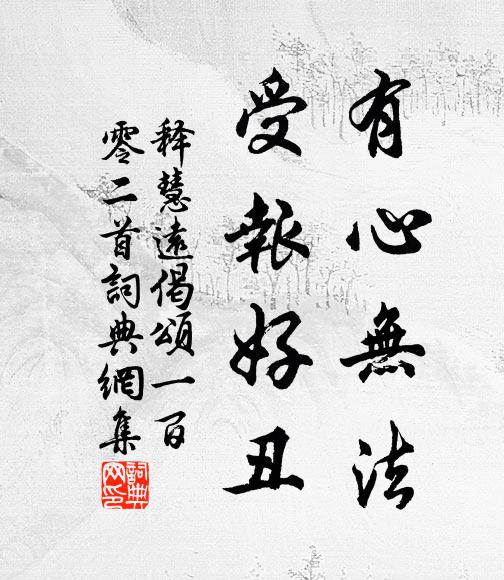 有心無法
受報好丑
释慧遠偈頌一百
零二首詞典網集
詞典网印